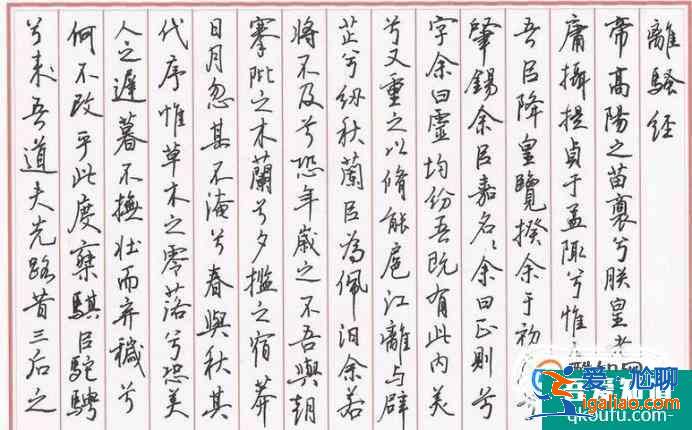 離騷经
帝高陽之苗裔兮朕皇考
庸攝提貞于孟陬兮惟
吾㠯降皇覽揆余于初
肇錫余㠯嘉名名余曰正則兮
字余曰靈均纷吾既有此内美
兮又重之以脩能扈江離与辟
芷兮纫秋蘭㠯為佩汨余若
將不及兮恐年歲之不吾與朝
搴阰之木蘭兮夕㩜之宿莽
日月忽其不淹兮春與秋其
代序惟草木之零落兮恐美
人之遲暮不撫壮而弃穢兮
何不改乎此度椉騏㠯駝騁
兮来吾道夫先路昔三后之
爱尴聊
www.igaliao.com
qk5ufu.com